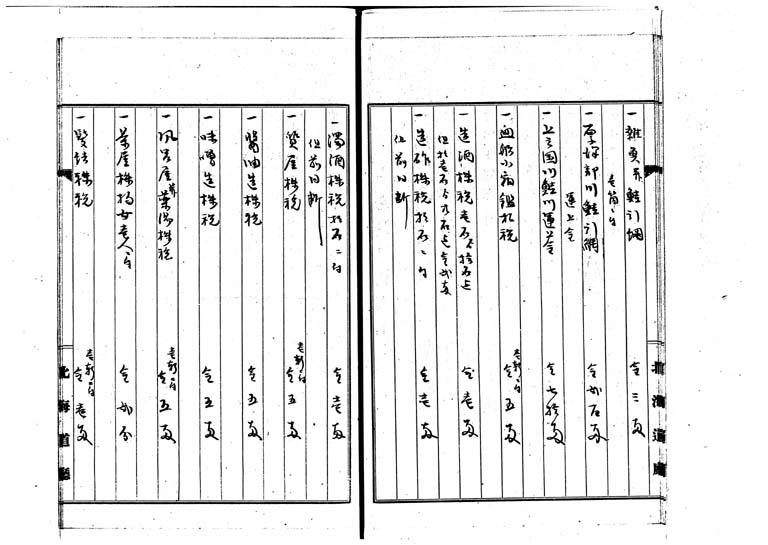 一 雑魚并鮭引網 金三両
壱箇ニ付
一 厚沢部川鮭引網 金弐百両
運上金
一 上ノ国川鮭川運上金 金七拾両
一 廻船小宿鑑札税 壱軒ニ付 金五両
一 造酒株税 壱石ヨリ拾石迄 金壱両
一 造酢株税 拾石ニ付 金壱両
但前同断
一 濁酒株税 拾石ニ付 金壱両
但前同断
一 質屋株税 壱軒ニ付 金五両
一 醤油造株税 金五両
一 味噌造株税 金五両
一 風呂屋并薬湯株税 壱軒ニ付 金五両
一 茶屋株 女壱人ニ付 金弐分
一 髪結株税 壱軒ニ付 金壱両
北海道庁
北海道廳